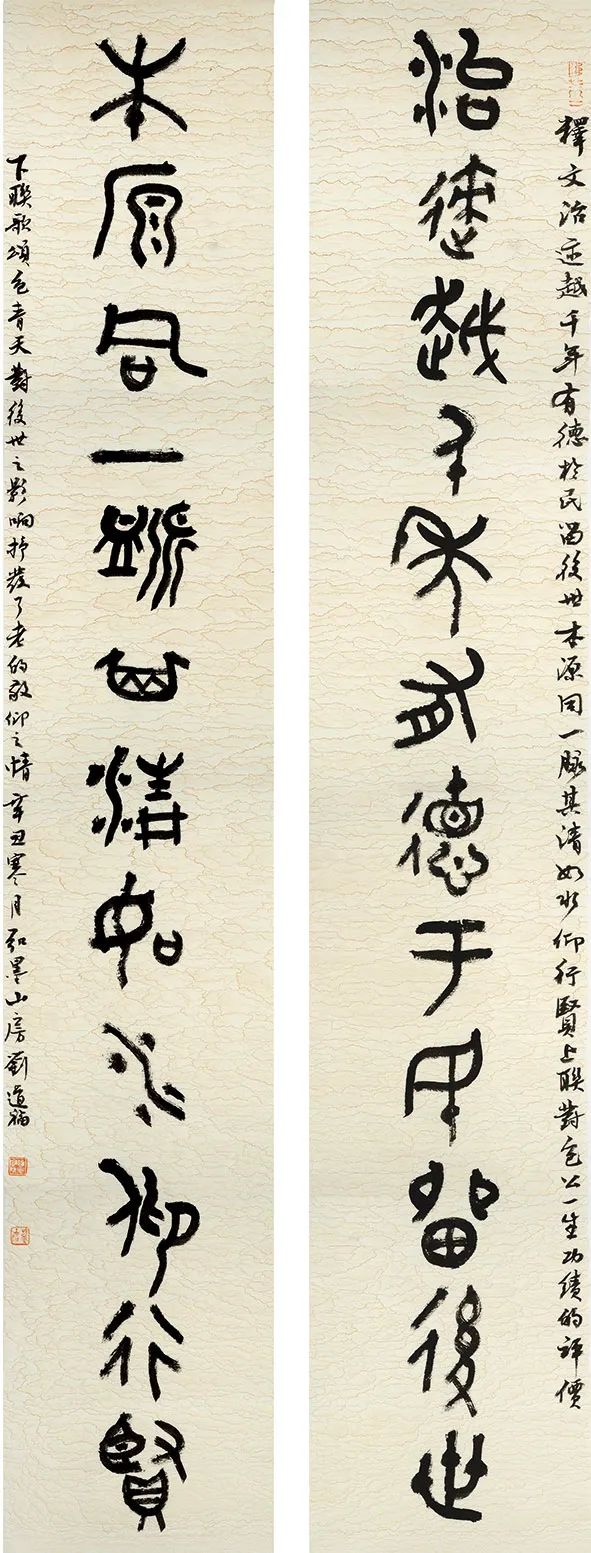 釋文治迹越千年有德於民留後世本源同一脈其清如水仰行賢上聯對包公一生功績的評價
治迹越千年有德于民留後世
本原同一脈其清如水仰行賢
下聯歌頌包青天對後世之影响抒發了老的敬仰之情辛丑寒月弘墨山房劉道福